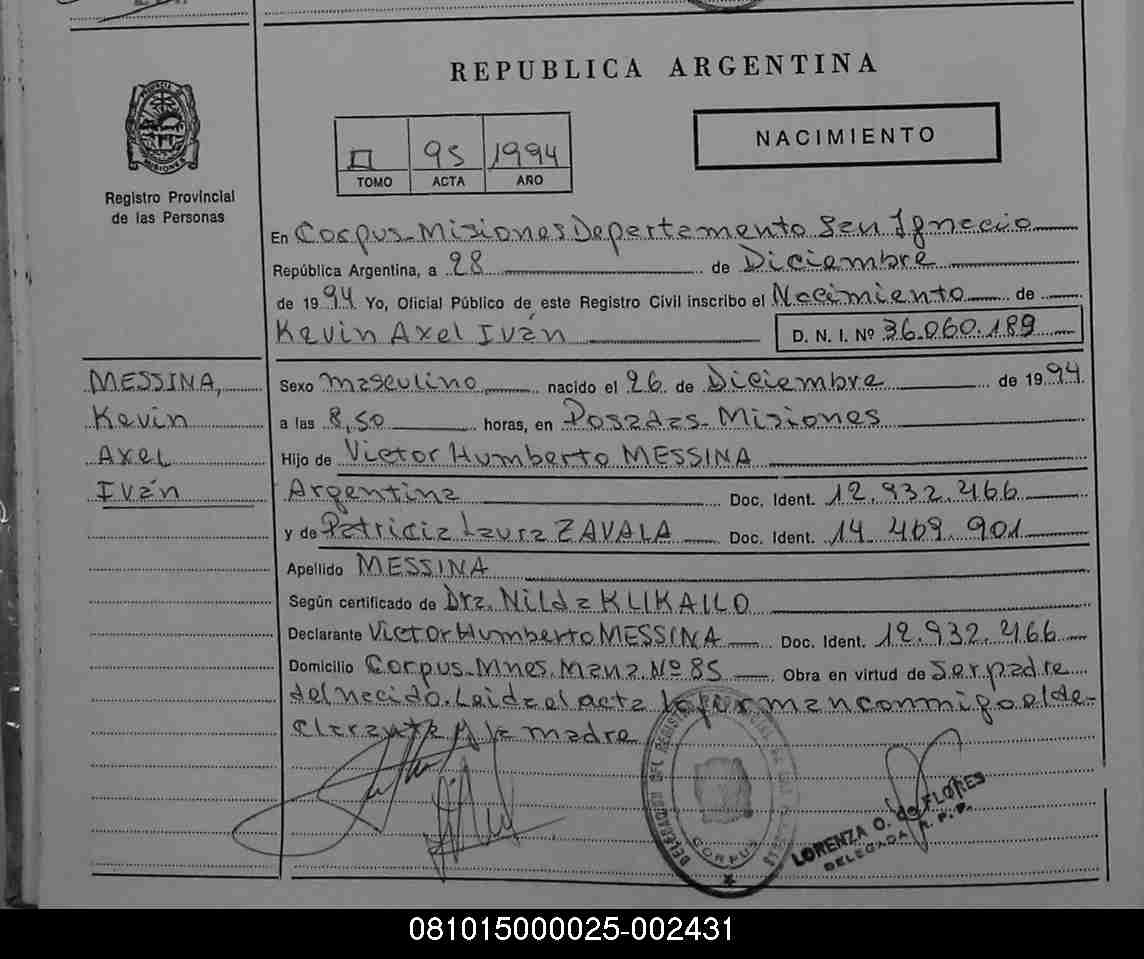 REPUBLICA ARGENTINA
PROVINCIA DE MISIONES
Registro Provincial
de las Personas
II 95 1994
TOMO ACTA AÑO
NACIMIENTO
En Corpus-Misiones Departamento San Ignacio
República Argentina, a 28 de Diciembre
de 1994 Yo, Oficial Público de este Registro Civil inscribo el Nacimiento de
Kevin Axel Iván D. N. I. Nº 36.060.189
MESSINA,
Kevin
Axel
Iván
Sexo masculino nacido el 26 de Diciembre de 1994
a las 8,50 horas, en Posadas-Misiones
Hijo de Victor Humberto MESSINA
Argentina Doc. Ident. 12.932.266
y de Patricia Laura ZAVALA Doc. Ident. 14.469.901
Apellido MESSINA
Según certificado de Dra. Nilda KLIKAILO
Declarante Victor Humberto MESSINA Doc. Ident. 12.932.266
Domicilio Corpus-Mnes. Manz. Nº 85 Obra en virtud de Ser padre
del nacido. Leida el acta la firman conmigo el de-
clarante y la madre
DELEGACION DEL REGISTRO
CORPUS
LORENZA O. de FLORES
DELEGADA R. P. P.
081015000025-002431